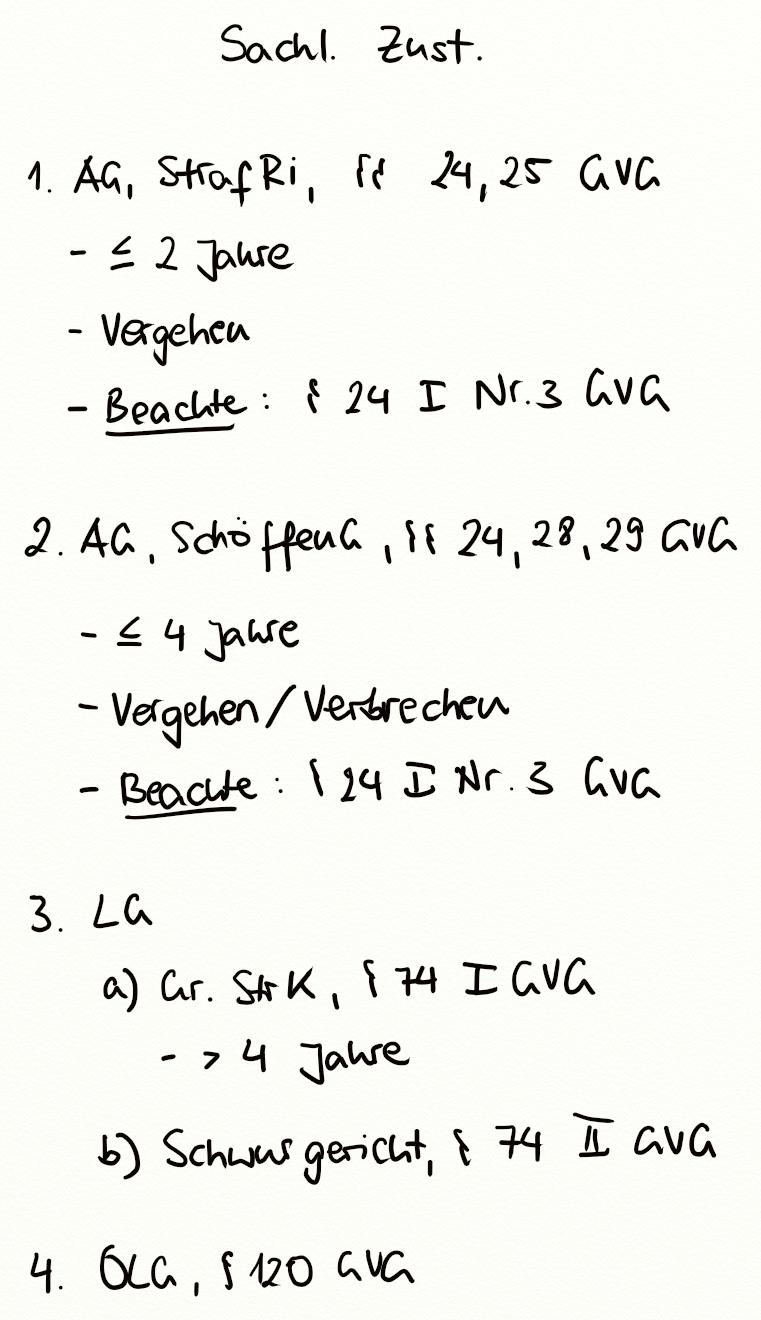 Sachl. Zust.
1. AG, StrafRi, §§ 24, 25 GVG
- ≤ 2 Jahre
- Vergehen
- Beachte: § 24 I Nr. 3 GVG
2. AG, SchöffenG, §§ 24, 28, 29 GVG
- ≤ 4 Jahre
- Vergehen/Verbrechen
- Beachte: § 24 I Nr. 3 GVG
3. LG
a) Gr. StrK, § 74 I GVG
- > 4 Jahre
b) Schwurgericht, § 74 II GVG
4. OLG, § 120 GVG